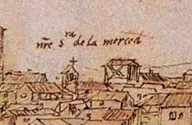 nrẽ sra de la merced